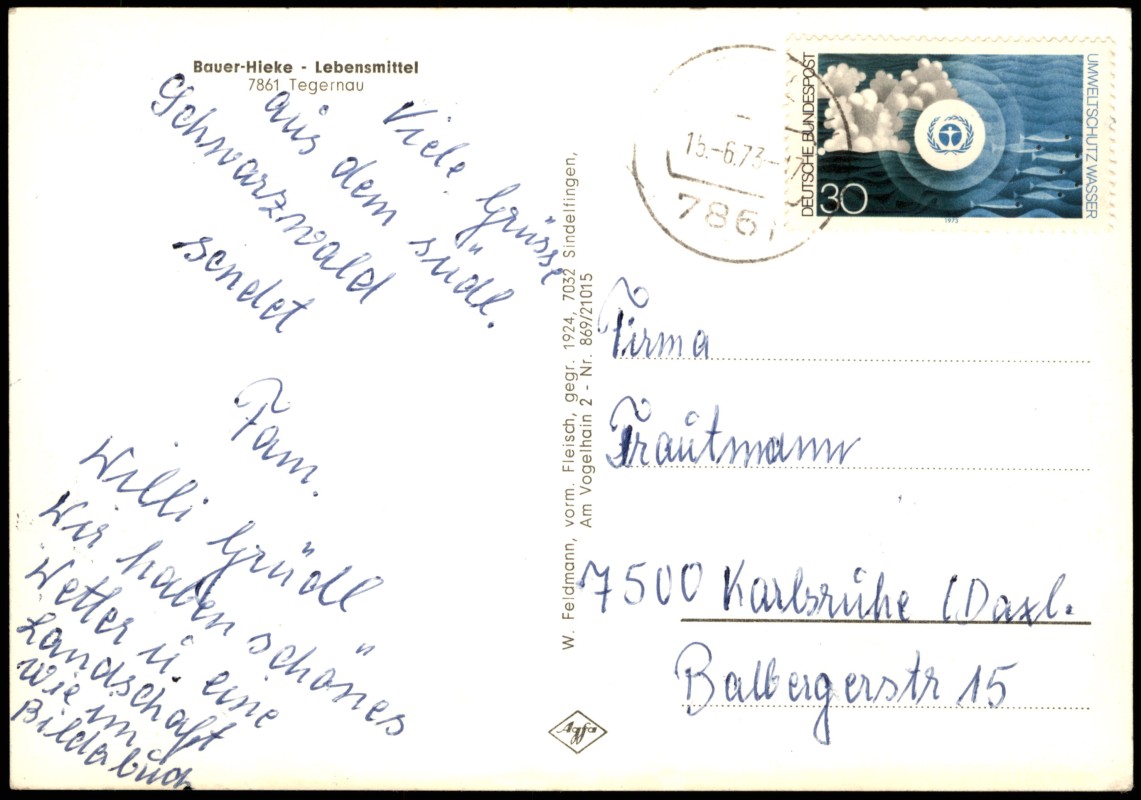 Bauer-Hieke - Lebensmittel
7861 Tegernau
Viele Grüsse
aus dem südl.
Schwarzwald
sendet
Fam.
Willi Gründl
Wir haben schönes
Wetter u. eine
Landschaft
wie im
Bilderbuch
W. Feldmann, vorm. Fleisch, gegr. 1924, 7032 Sindelfingen,
Am Vogelhain 2 - Nr. 869/21015
Agfa
15.-6.73-17
7861
DEUTSCHE BUNDESPOST
30
UMWELTSCHUTZ WASSER
1973
Firma
Trautmann
7500 Karlsruhe (Daxl.
Balbergerstr 15